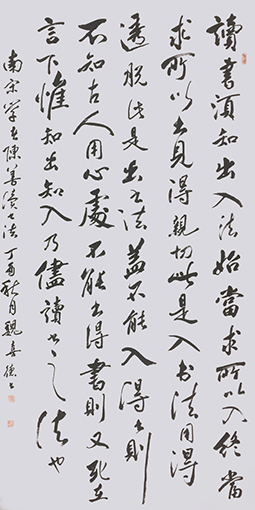 讀書須知出入法始當求所以入終當
求所以出見得親切此是入书法用得
透脫此是出书法蓋不能入得书則
不知古人用心處不能出得書則又死在
言下惟知出知入乃儘讀书之法也
南宋学者陳善讀书法丁酉秋月魏喜德书